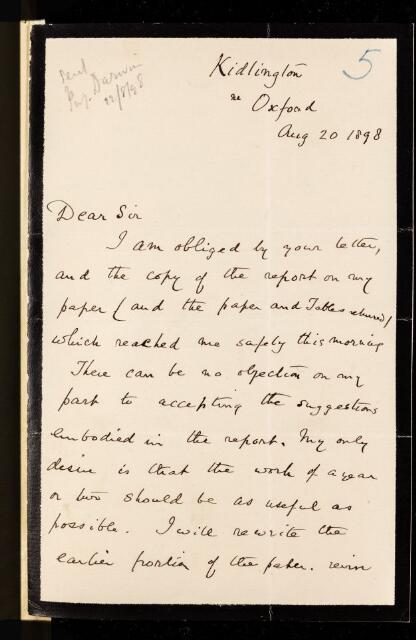 sent
Prof. Darwin
22/8/98
5
Kidlington
nr Oxford
Aug 20 1898
Dear Sir
I am obliged by your letter,
and the copy of the report on my
paper (and the paper and Tables returned)
which reached me safely this morning
There can be no objection on my
part to accepting the suggestions
embodied in the report. My only
desire is that the work of a year
or two should be as useful as
possible. I will rewrite the
earlier portion of the paper.